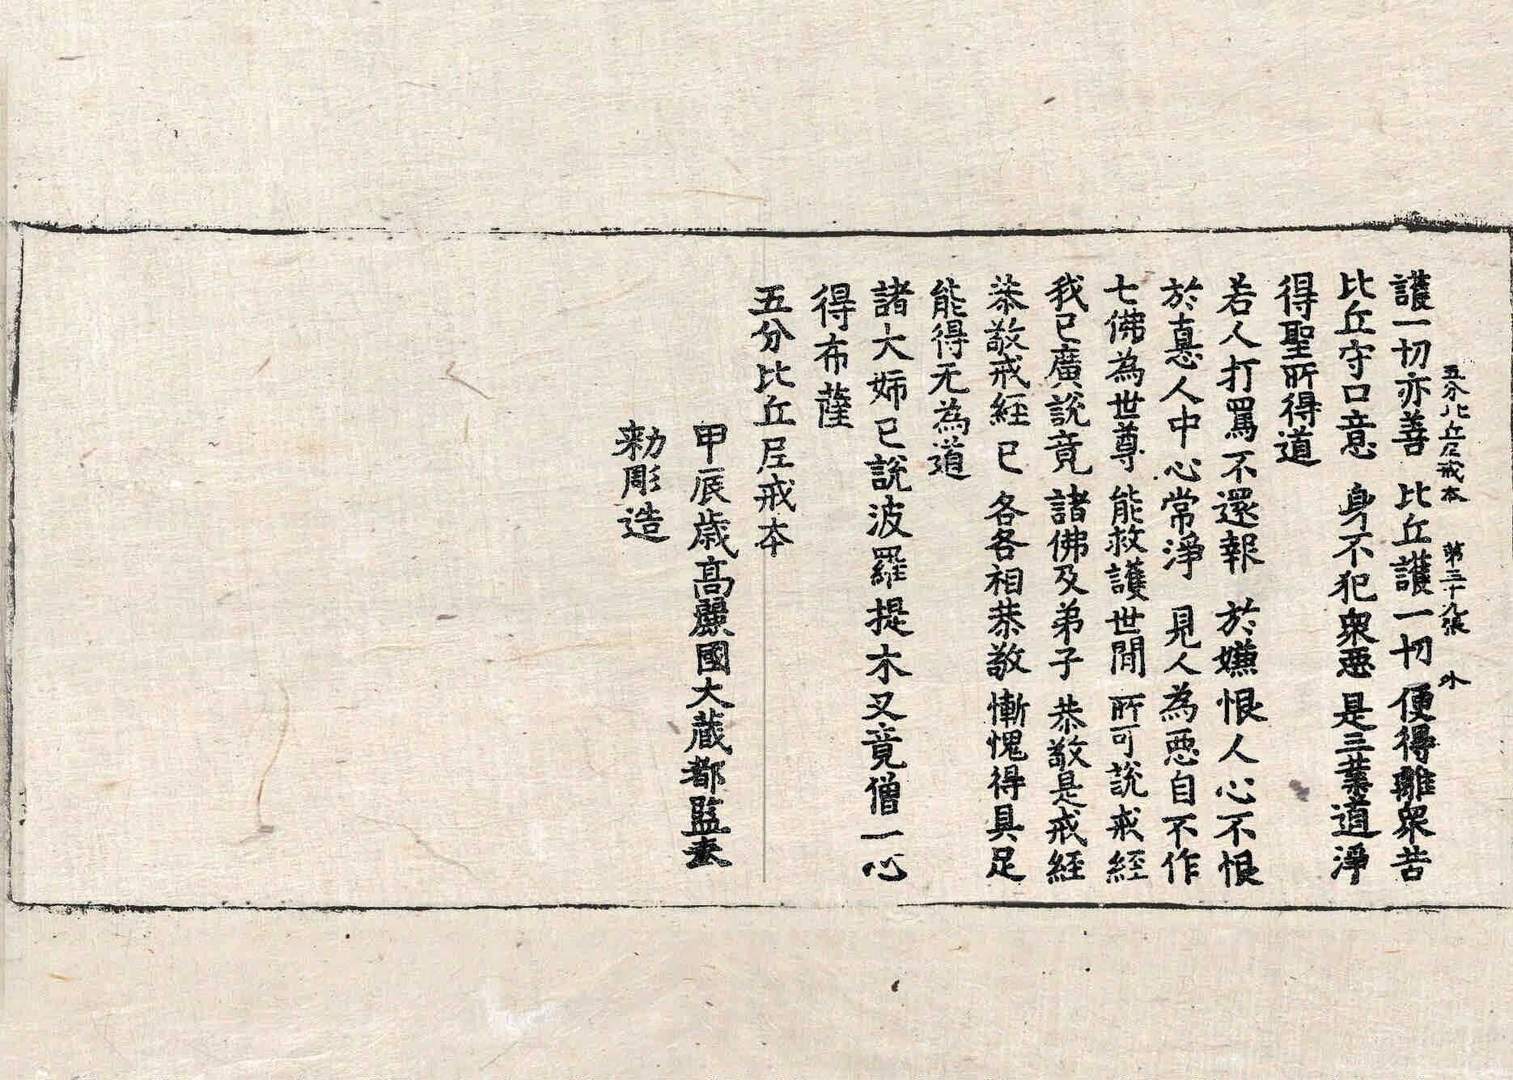 五分比丘尼戒本 第三十九張 外
護一切亦善 比丘護一切 便得離衆苦
比丘守口意 身不犯衆惡 是三業道淨
得聖所得道
若人打罵不還報 於嫌恨人心不恨
於恚人中心常淨 見人為惡自不作
七佛為世尊 能救護世閒 所可說戒經
我已廣說竟 諸佛及弟子 恭敬是戒經
恭敬戒經已 各各相恭敬 慚愧得具足
能得无為道
諸大姉已說波羅提木叉竟僧一心
得布薩
五分比丘尼戒本
甲辰歳高麗國大藏都監奉
勑彫造